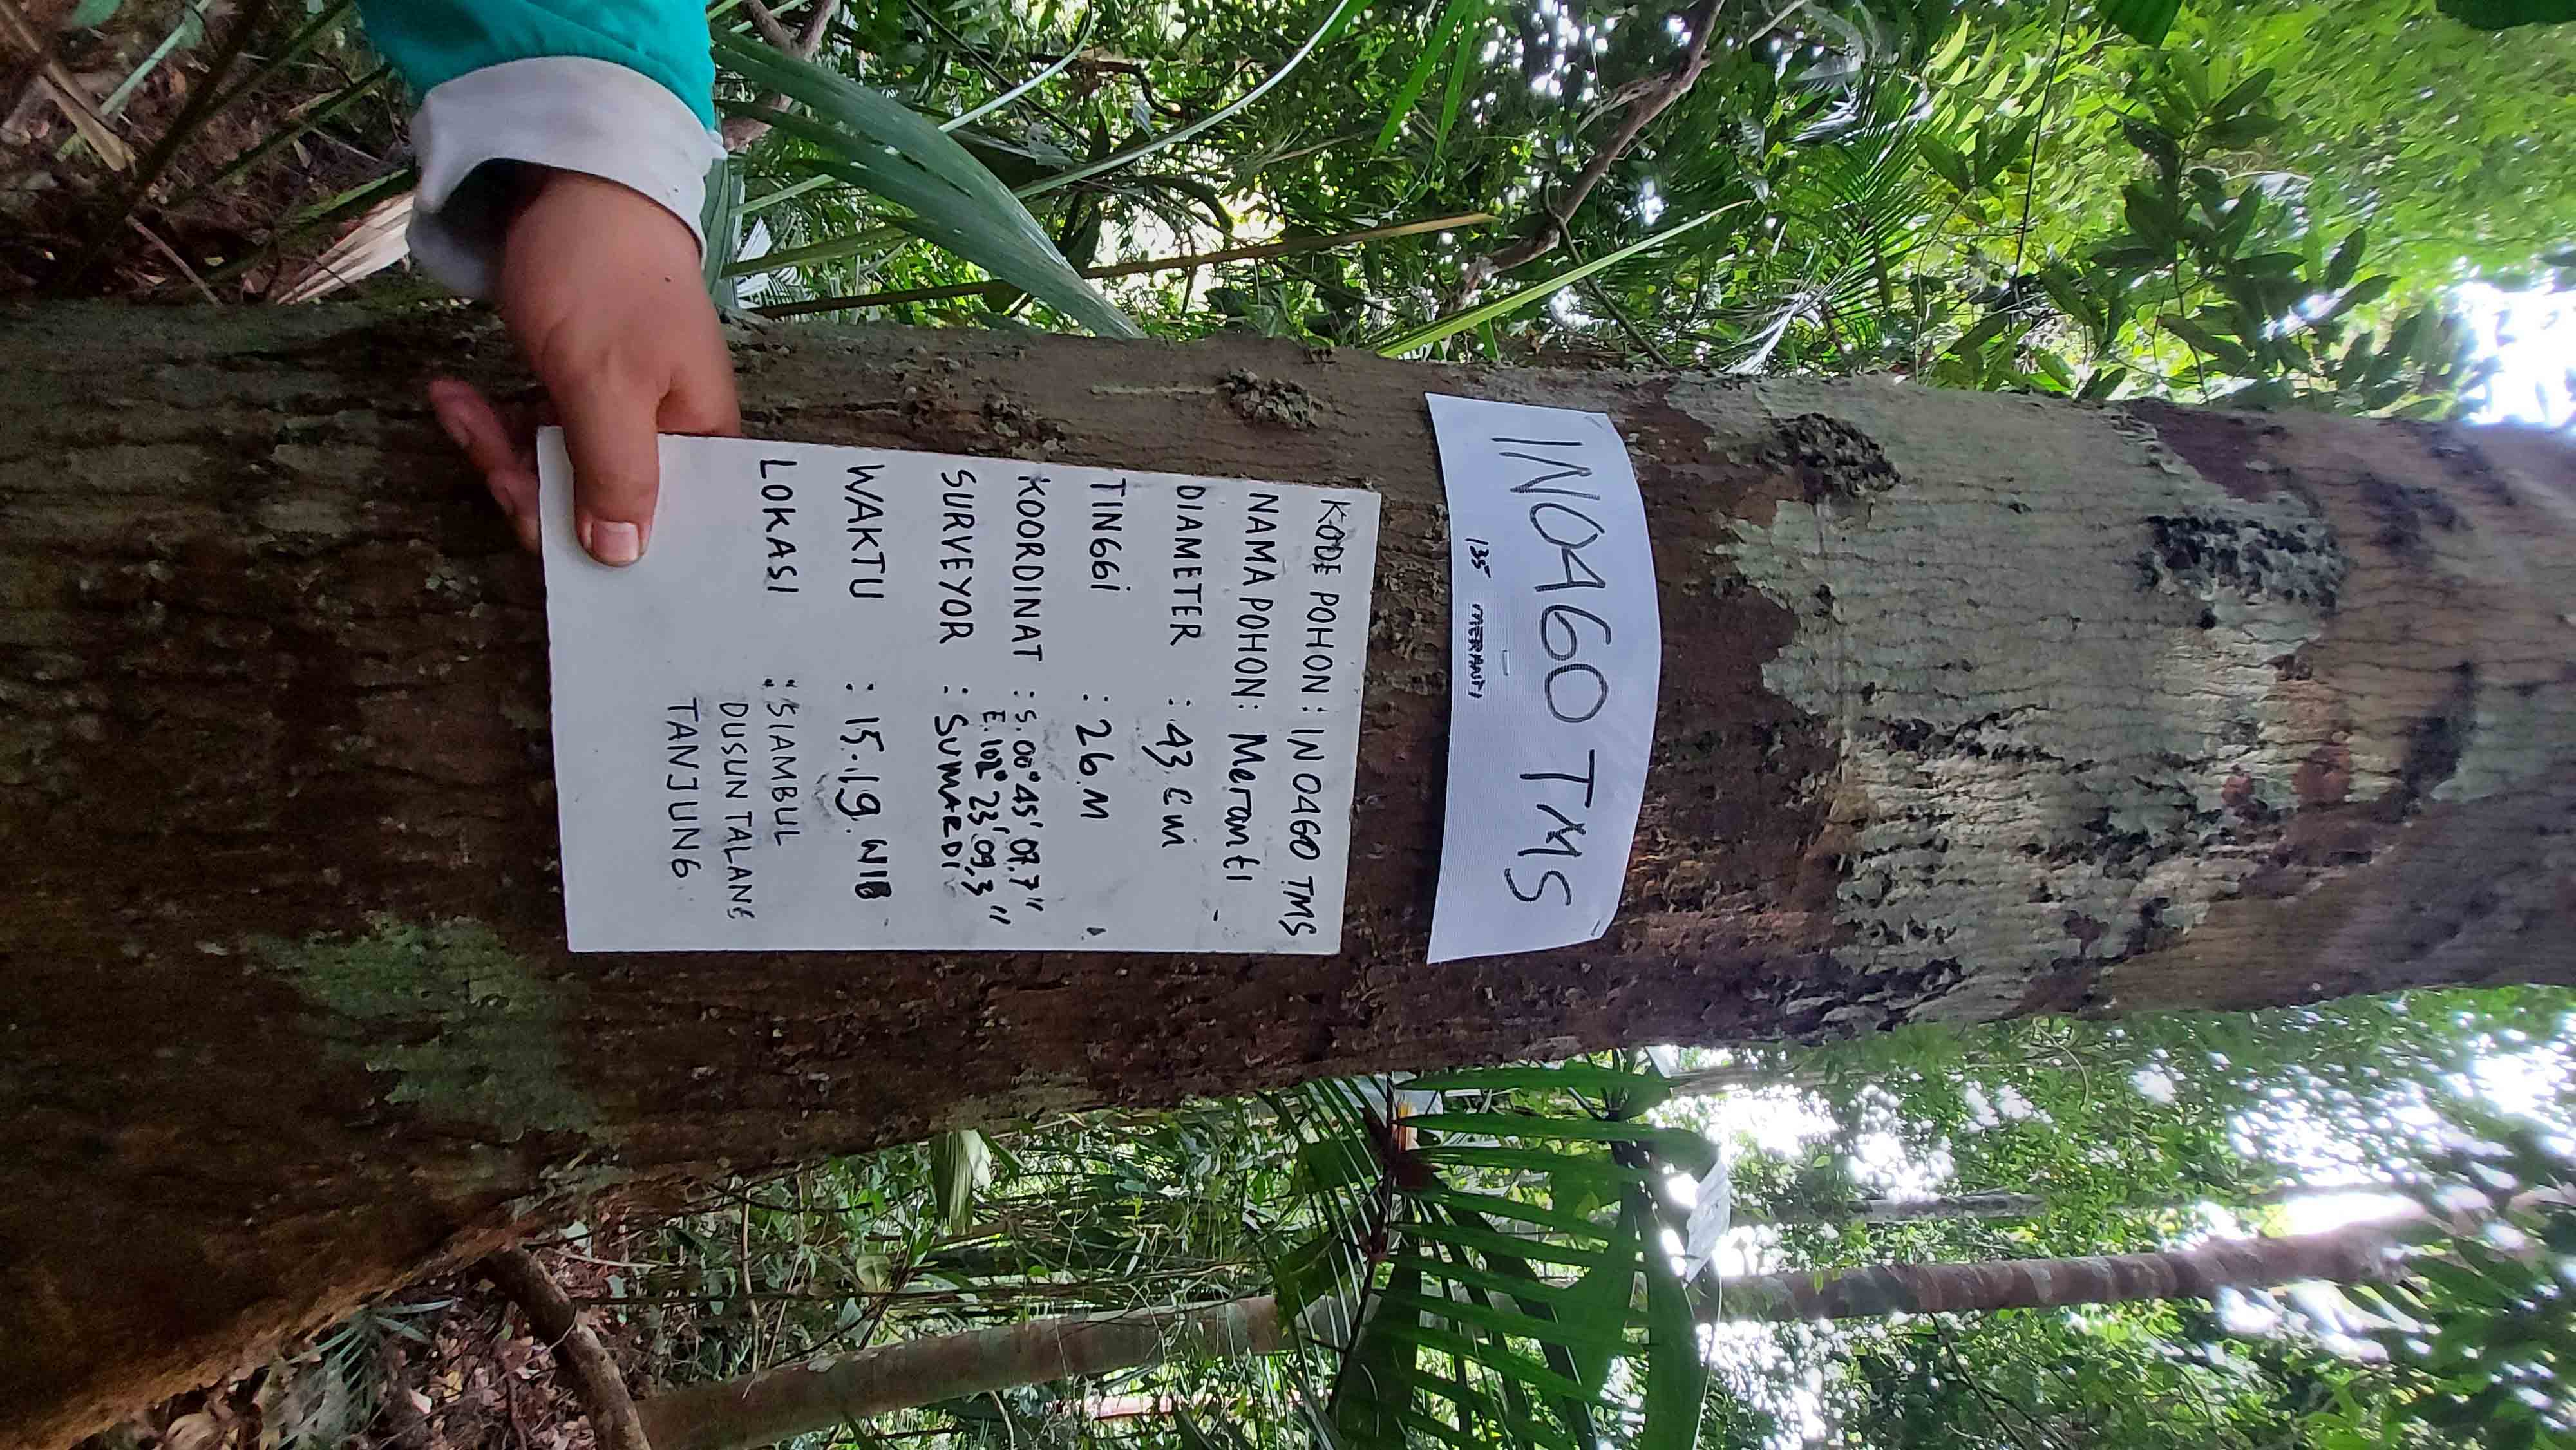 IN0460 TMS
135 MERANTI
KODE POHON : IN 0460 TMS
NAMA POHON : Meranti
DIAMETER : 43 Cm
TINGGi : 26 M
KOORDINAT : S. 00° 45' 07.7"
E. 102° 23' 09,3"
SURVEYOR : SUMARDI
WAKTU : 15.19. WIB
LOKASI : SIAMBUL
DUSUN TALANG
TANJUNG